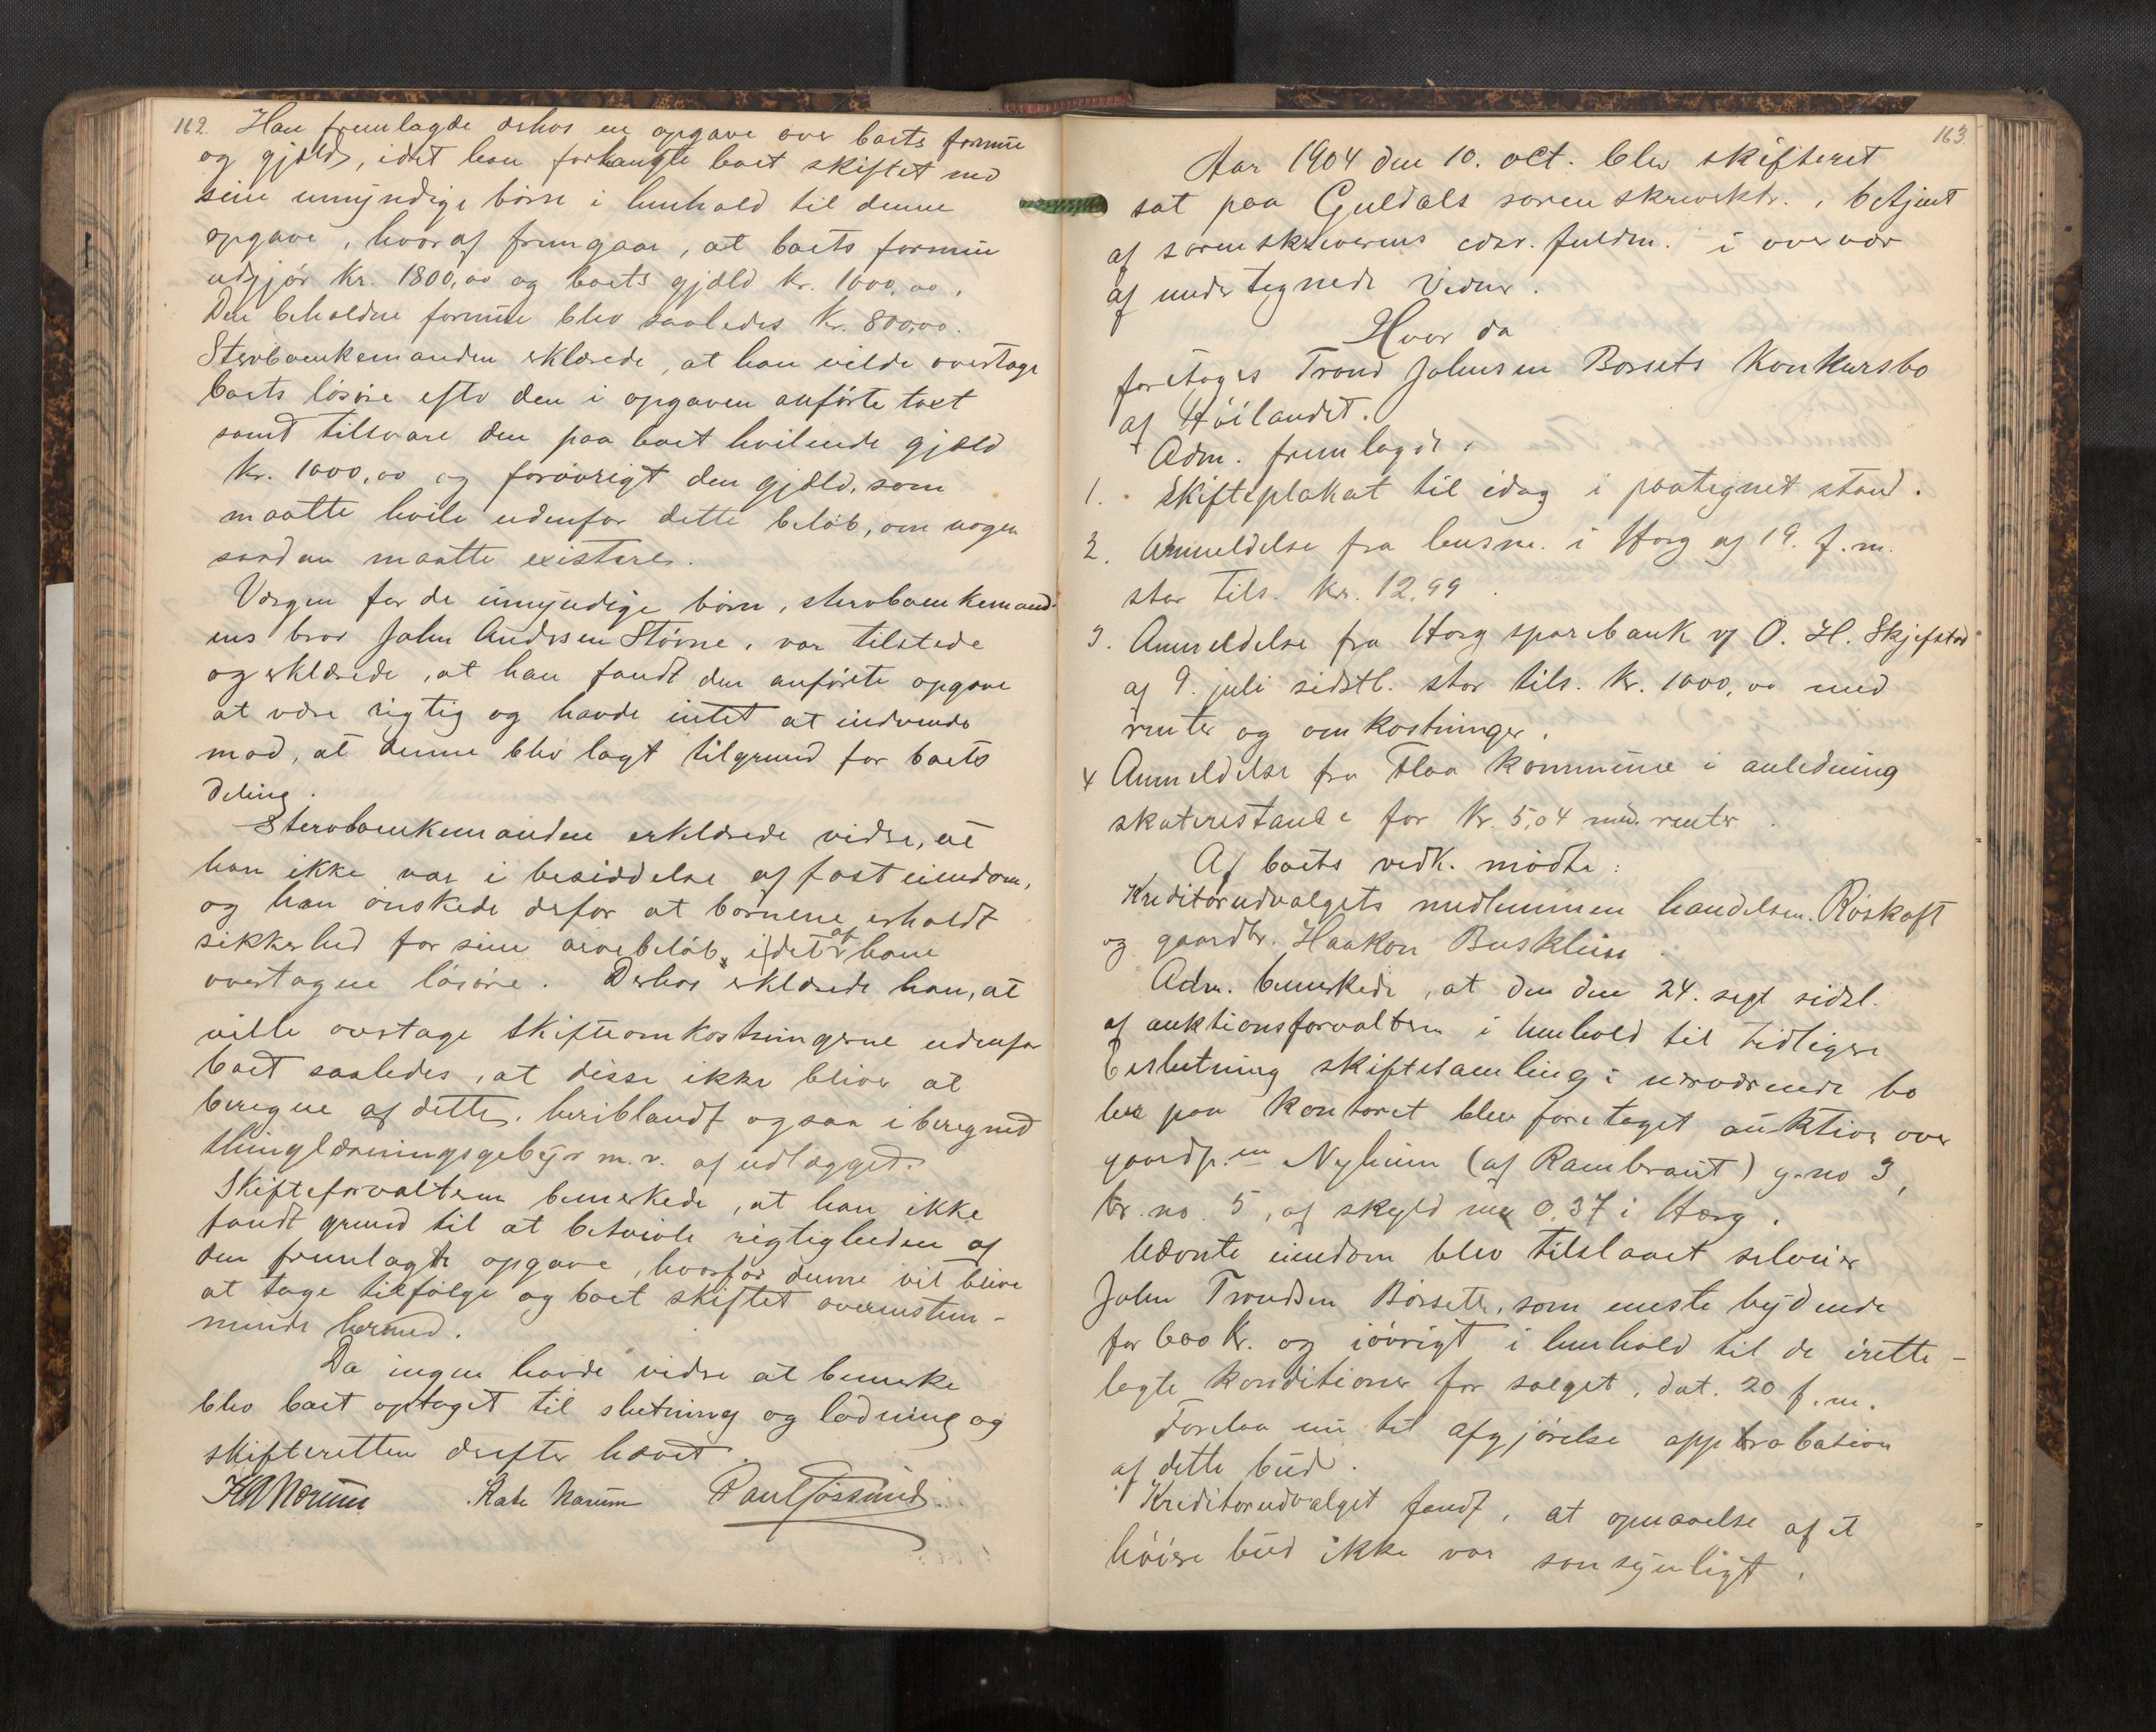 162. Han fremlagde derhos en opgave over boets formue
og gjæld, idet han forlangte boet skiftet med
sine umyndige børn i henhold til denne
opgave, hvoraf fremgaar, at boets formue
udgjør kr. 1800,00 og boets gjæld kr. 1000,00.
Den beholdne formue blev saaledes kr. 800,00.
Stervboenkemanden erklærede, at han vilde overtage
boets løsøre efter den i opgaven anførte taxt
samt tilsvare den paa boet hvilende gjæld
kr. 1000,00 og forøvrigt den gjæld, som
maatte hvile udenfor dette beløb, om nogen
saadan maatte existere.
Værgen for de umyndige børn, stervboenkemand-
ens bror John Anderssen Störne, var tilstede
og erklærede, at han fandt den anførte opgave
at være rigtig og havde intet at indvende
mod, at denne blev lagt tilgrund for boets
deling.
Stervboenkemanden erklærede videre, at
han ikke var i besiddelse af fast eiendom,
og han ønskede derfor at børnene erholdt
sikkerhed for sine arvebeløb i det af ham
overtagne løsøre. Derhos erklærede han, at
ville overtage skifteomkostningerne udenfor
boet saaledes, at disse ikke bliver at
beregne af dette, heriblandt ogsaa iberegned
thinglæsningsgebyr m.v. af udlægget.
Skifteforvalteren bemerkede, at han ikke
fandt grund til at betvivle rigtigheden af
den fremlagte opgave, hvorfor denne vil blive
at tage tilfølge og boet skiftet overenstem-
mende hermed.
Da ingen havde videre at bemerke
blev boet optaget til slutning og lodning og
skifteretten derefter hævet.
Kate Narum Paul Fossund
163
Aar 1904 den 10. oct. blev skifteret
sat paa Guldals sorenskriverktr., betjent
af sorenskriverens edsv. fuldm. i overvær
af undertegnede vidner.
Hvor da
foretoges Trond Johnsen Borsets konkursbo
af Høilandet.
Adm. fremlagde:
1. Skifteplakat til idag i paategnet stand.
2. Anmeldelse fra lensm. i Horg af 19. f.m.
stor tils. kr. 12,99.
3. Anmeldelse fra Horg sparebank v/ O. H. Skjefstad
af 9. juli sidstl. stor tils. kr. 1000,00 med
renter og omkostninger.
4 Anmeldelse fra Flaa kommune i anledning
skaterestance for kr. 5,04 med renter.
Af boets vedk. mødte:
Kreditorudvalgets medlemmer handelsm. Röskaft
og gaardbr. Haakon Busklein.
Adm. bemerkede, at den den 24. sept sidstl.
af auktionsforvalteren i henhold til tidligere
beslutning skiftesamling i nærværende bo
her paa kontoret blev foretaget auktion over
gaardp.en Nyheim (af Rambraut) g.no 3,
br. no. 5, af skyld mk 0,37 i Horg.
Nævnte eiendom blev tilslaaet selveier
John Trondsen Börseth, som eneste bydende
for 600 kr. og iøvrigt i henhold til de irette-
lagte konditioner for salget, dat. 20 f.m.
Forelaa nu til afgjørelse approbation
af dette bud.
Kreditorudvalget fandt, at opnaaelse af et
høiere bud ikke var sansynligt.